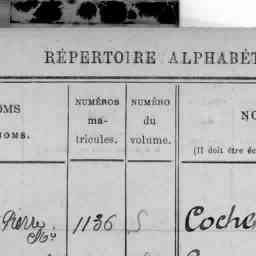 RÉPERTOIRE ALPHABÉT
OMS
NOMS.
NUMÉROS
ma-
tricules.
NUMÉRO
du
volume.
NO
(Il doit être éc
Pierre 1136 5 Coche